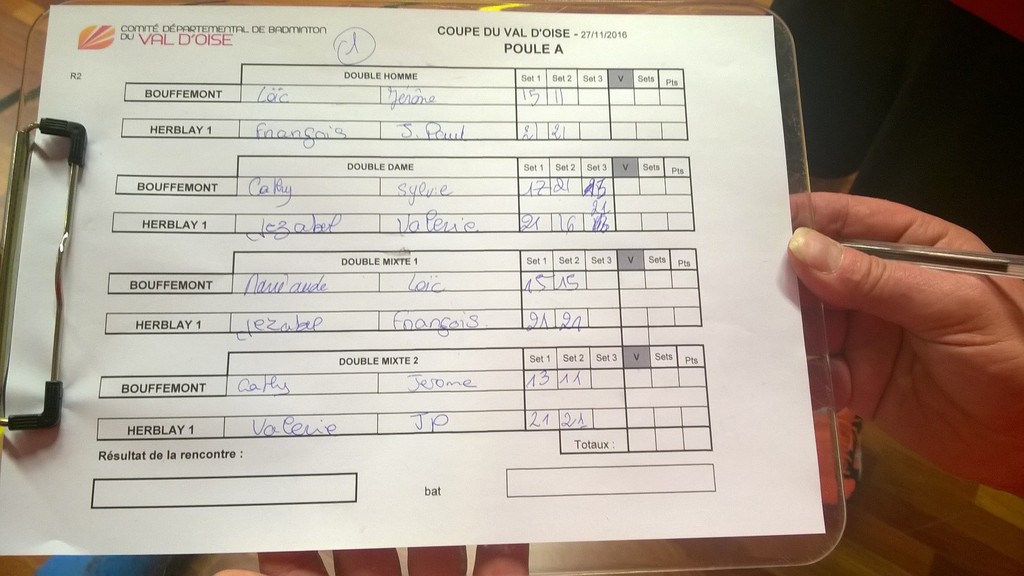 COMITÉ DÉPARTEMENTAL DE BADMINTON
DU VAL D'OISE
1
COUPE DU VAL D'OISE - 27/11/2016
POULE A
R2
DOUBLE HOMME Set 1 Set 2 Set 3 V Sets Pts
BOUFFEMONT Loïc Jérôme 15 11
HERBLAY 1 François J. Paul 21 21
DOUBLE DAME Set 1 Set 2 Set 3 V Sets Pts
BOUFFEMONT Cathy Sylvie 17 21
21
HERBLAY 1 Jezabel Valerie 21 16
DOUBLE MIXTE 1 Set 1 Set 2 Set 3 V Sets Pts
BOUFFEMONT Loïc 15 15
HERBLAY 1 Jezabel François 21 21
DOUBLE MIXTE 2 Set 1 Set 2 Set 3 V Sets Pts
BOUFFEMONT Cathy Jerome 13 11
HERBLAY 1 Valerie JP 21 21
Totaux :
Résultat de la rencontre :
bat